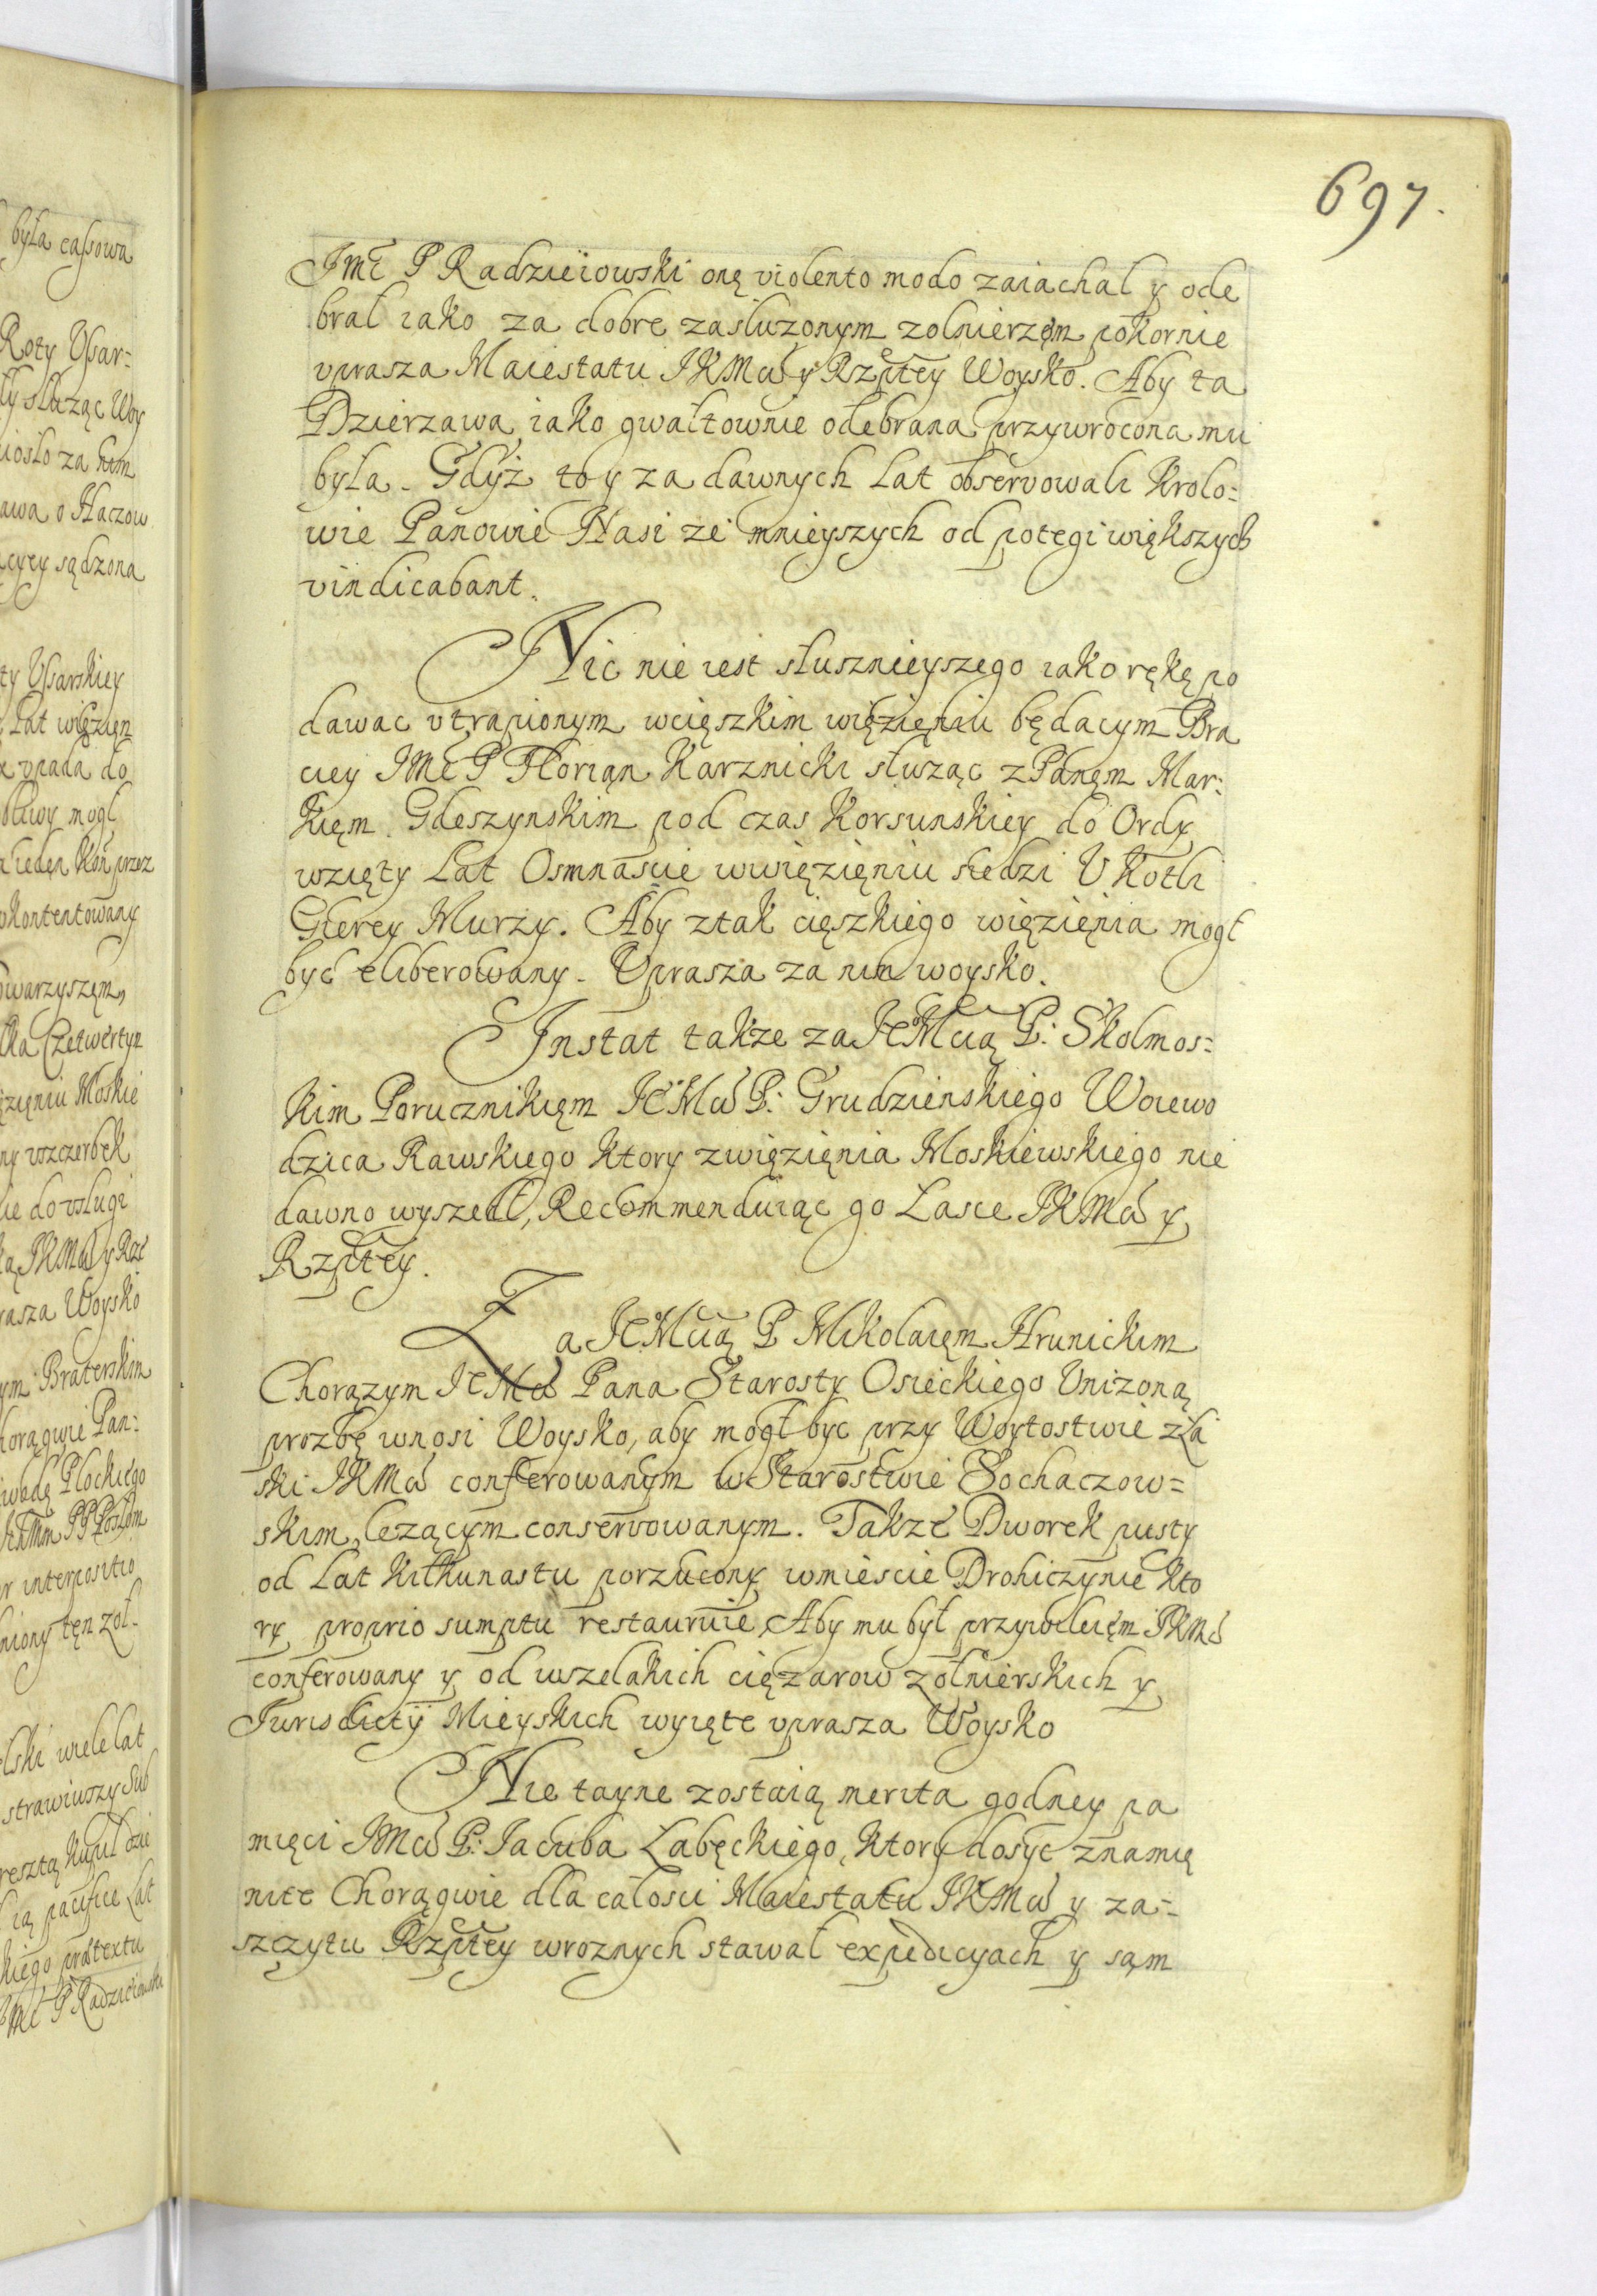 697.
JMć P Radzieiowski onę violento modo zaiachał y ode
brał iako za dobrę zasłuzonym zołnierzęm pokornie
vprasza Maiestatu JKMci y Rzptey Woysko. Aby ta
Dzierzawa iako gwałtownie odebrana przywrocona mu
była. Gdyż to y za dawnych Lat observowali Krolo=
wie Panowie Nasi ze mnieyszych od potegi większych
vindicabant.
Nic nie iest słusznieyszego iako rękę po
dawac vtrapionym wcięszkim więzięniu będacym Bra
ciey JMć P Floriąn Karznicki słuząc z Panęm Mar=
kięm Gdeszynskim pod czas Korsunskiey do Ordy
wzięty Lat Osmnascie wwięzięniu siedzi V Kotli
Gierey Murzy. Aby ztak cięszkiego więzięnia mogł
być eliberowany. Vprasza za nim woysko.
Instat takze za JeMcią P: Skolmos=
kim Porucznikięm JeMci P: Grudzienskiego Woiewo
dzica Rawskiego ktory zwięzięnia Moskiewskiego nie
dawno wyszedł, Recommenduiąc go Łasce JKMci y
Rzptey.
Za JeMcią P Mikołaięm Hrunickim
Chorązym JeMci Pana Starosty Osieckiego Vnizoną
prozbę wnosi Woysko, aby mogł byc przy Woytostwie zŁa
ski JKMci conferowanym w Starostwie Sochaczow=
skim lezącym conservowanym. Takze Dworek pusty
od Lat kilkunastu porzucony wmiescie Drohiczynie kto
ry proprio sumptu restauruie, Aby mu był przywileięm JKMci
conferowany y od wszelakich cięzarow zołnierskich y
Jurisdictij Mieyskich wyięte vprasza Woysko
Nie tayne zostaią merita godney pa
mięci JMci P: Iacuba Łabęckiego, ktory dosyć znamię
nite Chorągwie dla całosci Maiestatu JKMci y za=
szczytu Rzptey wroznych stawał expedicyach y sąm